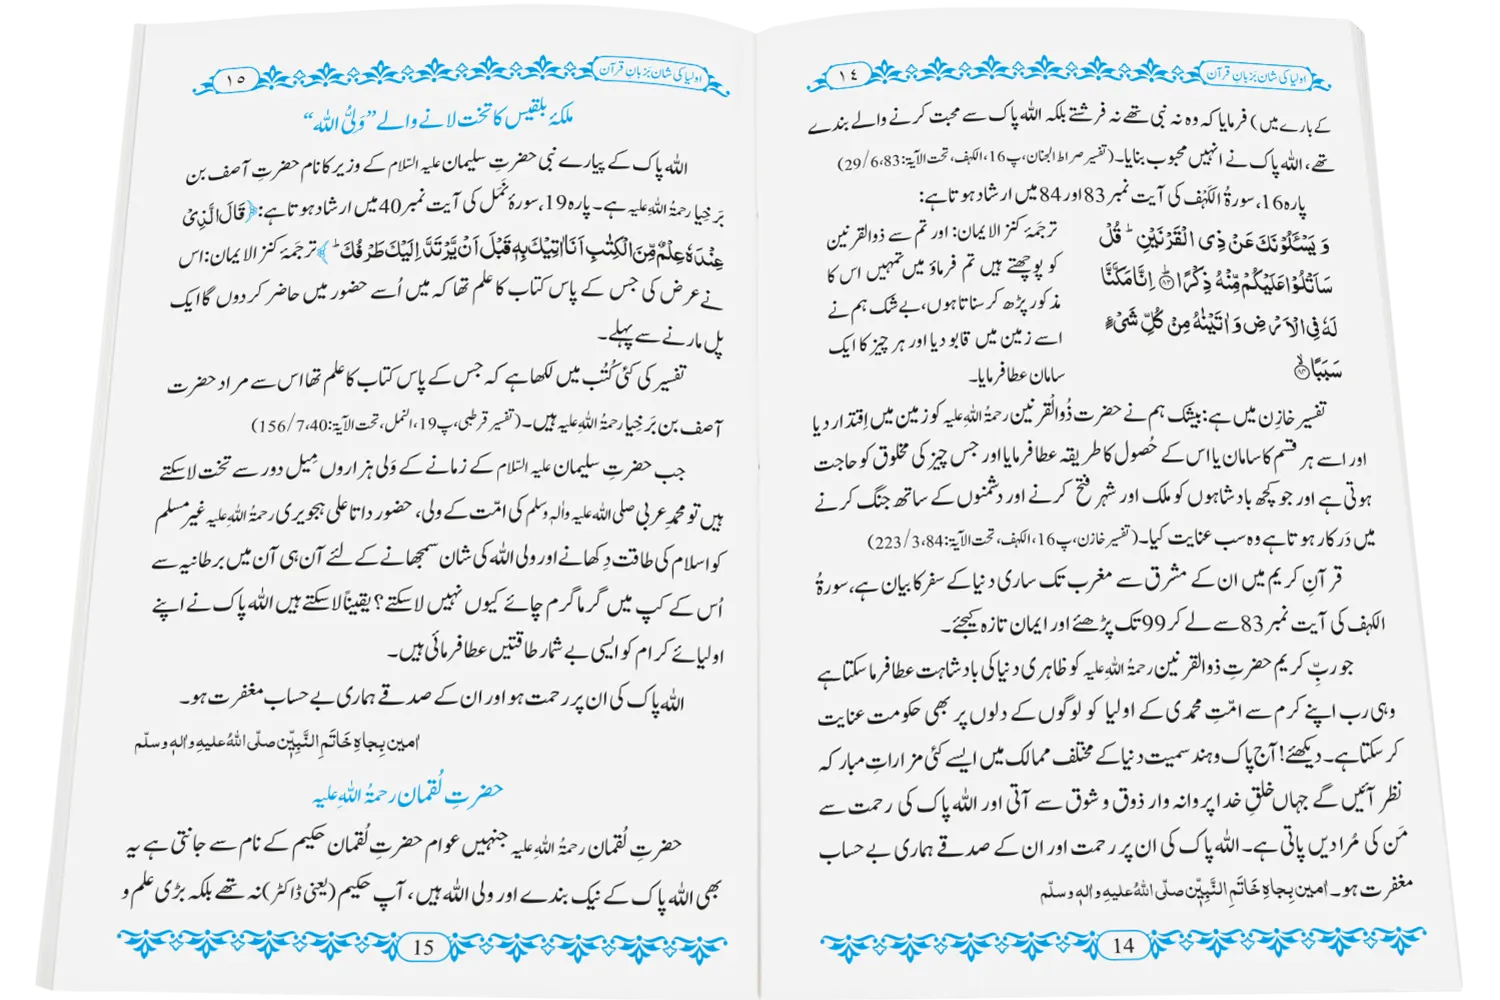 اولیا کی شان بَزبانِ قرآن
١٤
کے بارے میں) فرمایا کہ وہ نہ نبی تھے نہ فرشتے بلکہ اللہ پاک سے محبت کرنے والے بندے
تھے، اللہ پاک نے انہیں محبوب بنایا۔ (تفسیر صراط الجنان، پ16، الکہف، تحت الآیۃ:83، 29/6)
پارہ 16، سورۃُ الکَہْف کی آیت نمبر 83 اور 84 میں ارشاد ہوتا ہے:
وَ یَسْــٴَـلُوْنَكَ عَنْ ذِی الْقَرْنَیْنِؕ-قُلْ
سَاَتْلُوْا عَلَیْكُمْ مِّنْهُ ذِكْرًاؕ(۸۳) اِنَّا مَكَّنَّا
لَهٗ فِی الْاَرْضِ وَ اٰتَیْنٰهُ مِنْ كُلِّ شَیْءٍ
سَبَبًاۙ(۸۴)
ترجَمۂ کنز الایمان: اور تم سے ذوالقرنین
کو پوچھتے ہیں تم فرماؤ میں تمہیں اس کا
مذکور پڑھ کر سناتا ہوں، بے شک ہم نے
اسے زمین میں قابو دیا اور ہر چیز کا ایک
سامان عطا فرمایا۔
تفسیرِ خازن میں ہے: بیشک ہم نے حضرت ذُوالْقرنین رحمۃُ اللہِ علیہ کو زمین میں اِقتِدار دیا
اور اسے ہر قسم کا سامان یا اس کے حُصول کا طریقہ عطا فرمایا اور جس چیز کی مخلوق کو حاجت
ہوتی ہے اور جو کچھ بادشاہوں کو ملک اور شہر فتح کرنے اور دشمنوں کے ساتھ جنگ کرنے
میں دَرکار ہوتا ہے وہ سب عنایت کیا۔ (تفسیر خازن، پ16، الکہف، تحت الآیۃ:84، 223/3)
قرآنِ کریم میں ان کے مشرق سے مغرب تک ساری دنیا کے سفر کا بیان ہے، سورۃُ
الکہف کی آیت نمبر 83 سے لے کر 99 تک پڑھئے اور ایمان تازہ کیجئے۔
جو ربِّ کریم حضرتِ ذوالقرنین رحمۃُ اللہِ علیہ کو ظاہری دنیا کی بادشاہت عطا فرما سکتا ہے
وہی رب اپنے کرم سے امّتِ محمدی کے اولیا کو لوگوں کے دلوں پر بھی حکومت عنایت
کر سکتا ہے۔ دیکھئے! آج پاک و ہند سمیت دنیا کے مختلف ممالک میں ایسے کئی مزاراتِ مبارکہ
نظر آئیں گے جہاں خلقِ خدا پروانہ وار ذوق و شوق سے آتی اور اللہ پاک کی رحمت سے
مَن کی مُرادیں پاتی ہے۔ اللہ پاک کی ان پر رحمت اور ان کے صدقے ہماری بے حساب
مغفرت ہو۔ اٰمین بِجاہِ خَاتَمِ النَّبِیّٖن صلَّی اللہُ علیہِ واٰلہٖ وسلَّم
14
اولیا کی شان بَزبانِ قرآن
١٥
ملکۂ بلقیس کا تخت لانے والے ”وَلِیُّ اللہ“
اللہ پاک کے پیارے نبی حضرتِ سلیمان علیہ السّلام کے وزیر کا نام حضرتِ آصف بن
بَرخِیا رحمۃُ اللہِ علیہ ہے۔ پارہ 19، سورۂ نَمْل کی آیت نمبر 40 میں ارشاد ہوتا ہے: ﴿قَالَ الَّذِیْ
عِنْدَهٗ عِلْمٌ مِّنَ الْكِتٰبِ اَنَا اٰتِیْكَ بِهٖ قَبْلَ اَنْ یَّرْتَدَّ اِلَیْكَ طَرْفُكَؕ-﴾ ترجَمۂ کنز الایمان: اس
نے عرض کی جس کے پاس کتاب کا علم تھا کہ میں اُسے حضور میں حاضر کر دوں گا ایک
پل مارنے سے پہلے۔
تفسیر کی کئی کُتُب میں لکھا ہے کہ جس کے پاس کتاب کا علم تھا اس سے مراد حضرت
آصف بن بَرخِیا رحمۃُ اللہِ علیہ ہیں۔ (تفسیر قرطبی، پ19، النمل، تحت الآیۃ:40، 156/7)
جب حضرتِ سلیمان علیہ السّلام کے زمانے کے وَلی ہزاروں مِیل دور سے تخت لا سکتے
ہیں تو محمدِ عربی صلی اللہ علیہ واٰلہٖ وسلم کی امّت کے ولی، حضور داتا علی ہجویری رحمۃُ اللہِ علیہ غیر مسلم
کو اسلام کی طاقت دِکھانے اور ولی اللہ کی شان سمجھانے کے لئے آن ہی آن میں برطانیہ سے
اُس کے کپ میں گرما گرم چائے کیوں نہیں لا سکتے؟ یقیناً لا سکتے ہیں اللہ پاک نے اپنے
اولیائے کرام کو ایسی بے شمار طاقتیں عطا فرمائی ہیں۔
اللہ پاک کی ان پر رحمت ہو اور ان کے صدقے ہماری بے حساب مغفرت ہو۔
اٰمین بِجاہِ خَاتَمِ النَّبِیّٖن صلَّی اللہُ علیہِ واٰلہٖ وسلَّم
حضرتِ لُقمان رحمۃُ اللہِ علیہ
حضرتِ لُقمان رحمۃُ اللہِ علیہ جنہیں عوام حضرتِ لُقمان حکیم کے نام سے جانتی ہے یہ
بھی اللہ پاک کے نیک بندے اور ولی اللہ ہیں، آپ حکیم (یعنی ڈاکٹر) نہ تھے بلکہ بڑی علم و
15